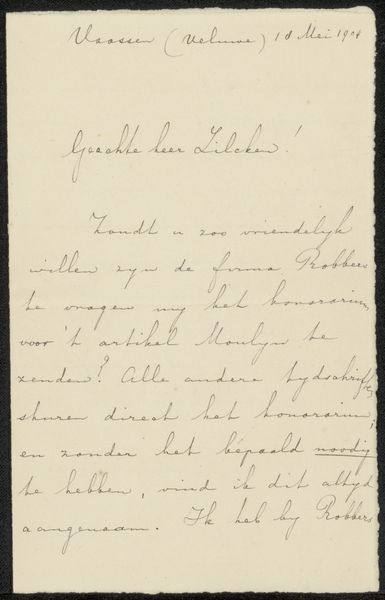 Vaassen (Veluwe) 18 Mei 1904
Geachte heer Zilcken!
Zoudt u zoo vriendelijk
willen zyn de firma Robbers
te vragen my het honorarium
voor 't artikel Moulyn te
zenden? Alle andere tydschriften
sturen direct het honorarium,
en zonder het bepaald noodig
te hebben, vind ik dit altyd
aangenaam. Ik heb by Robbers